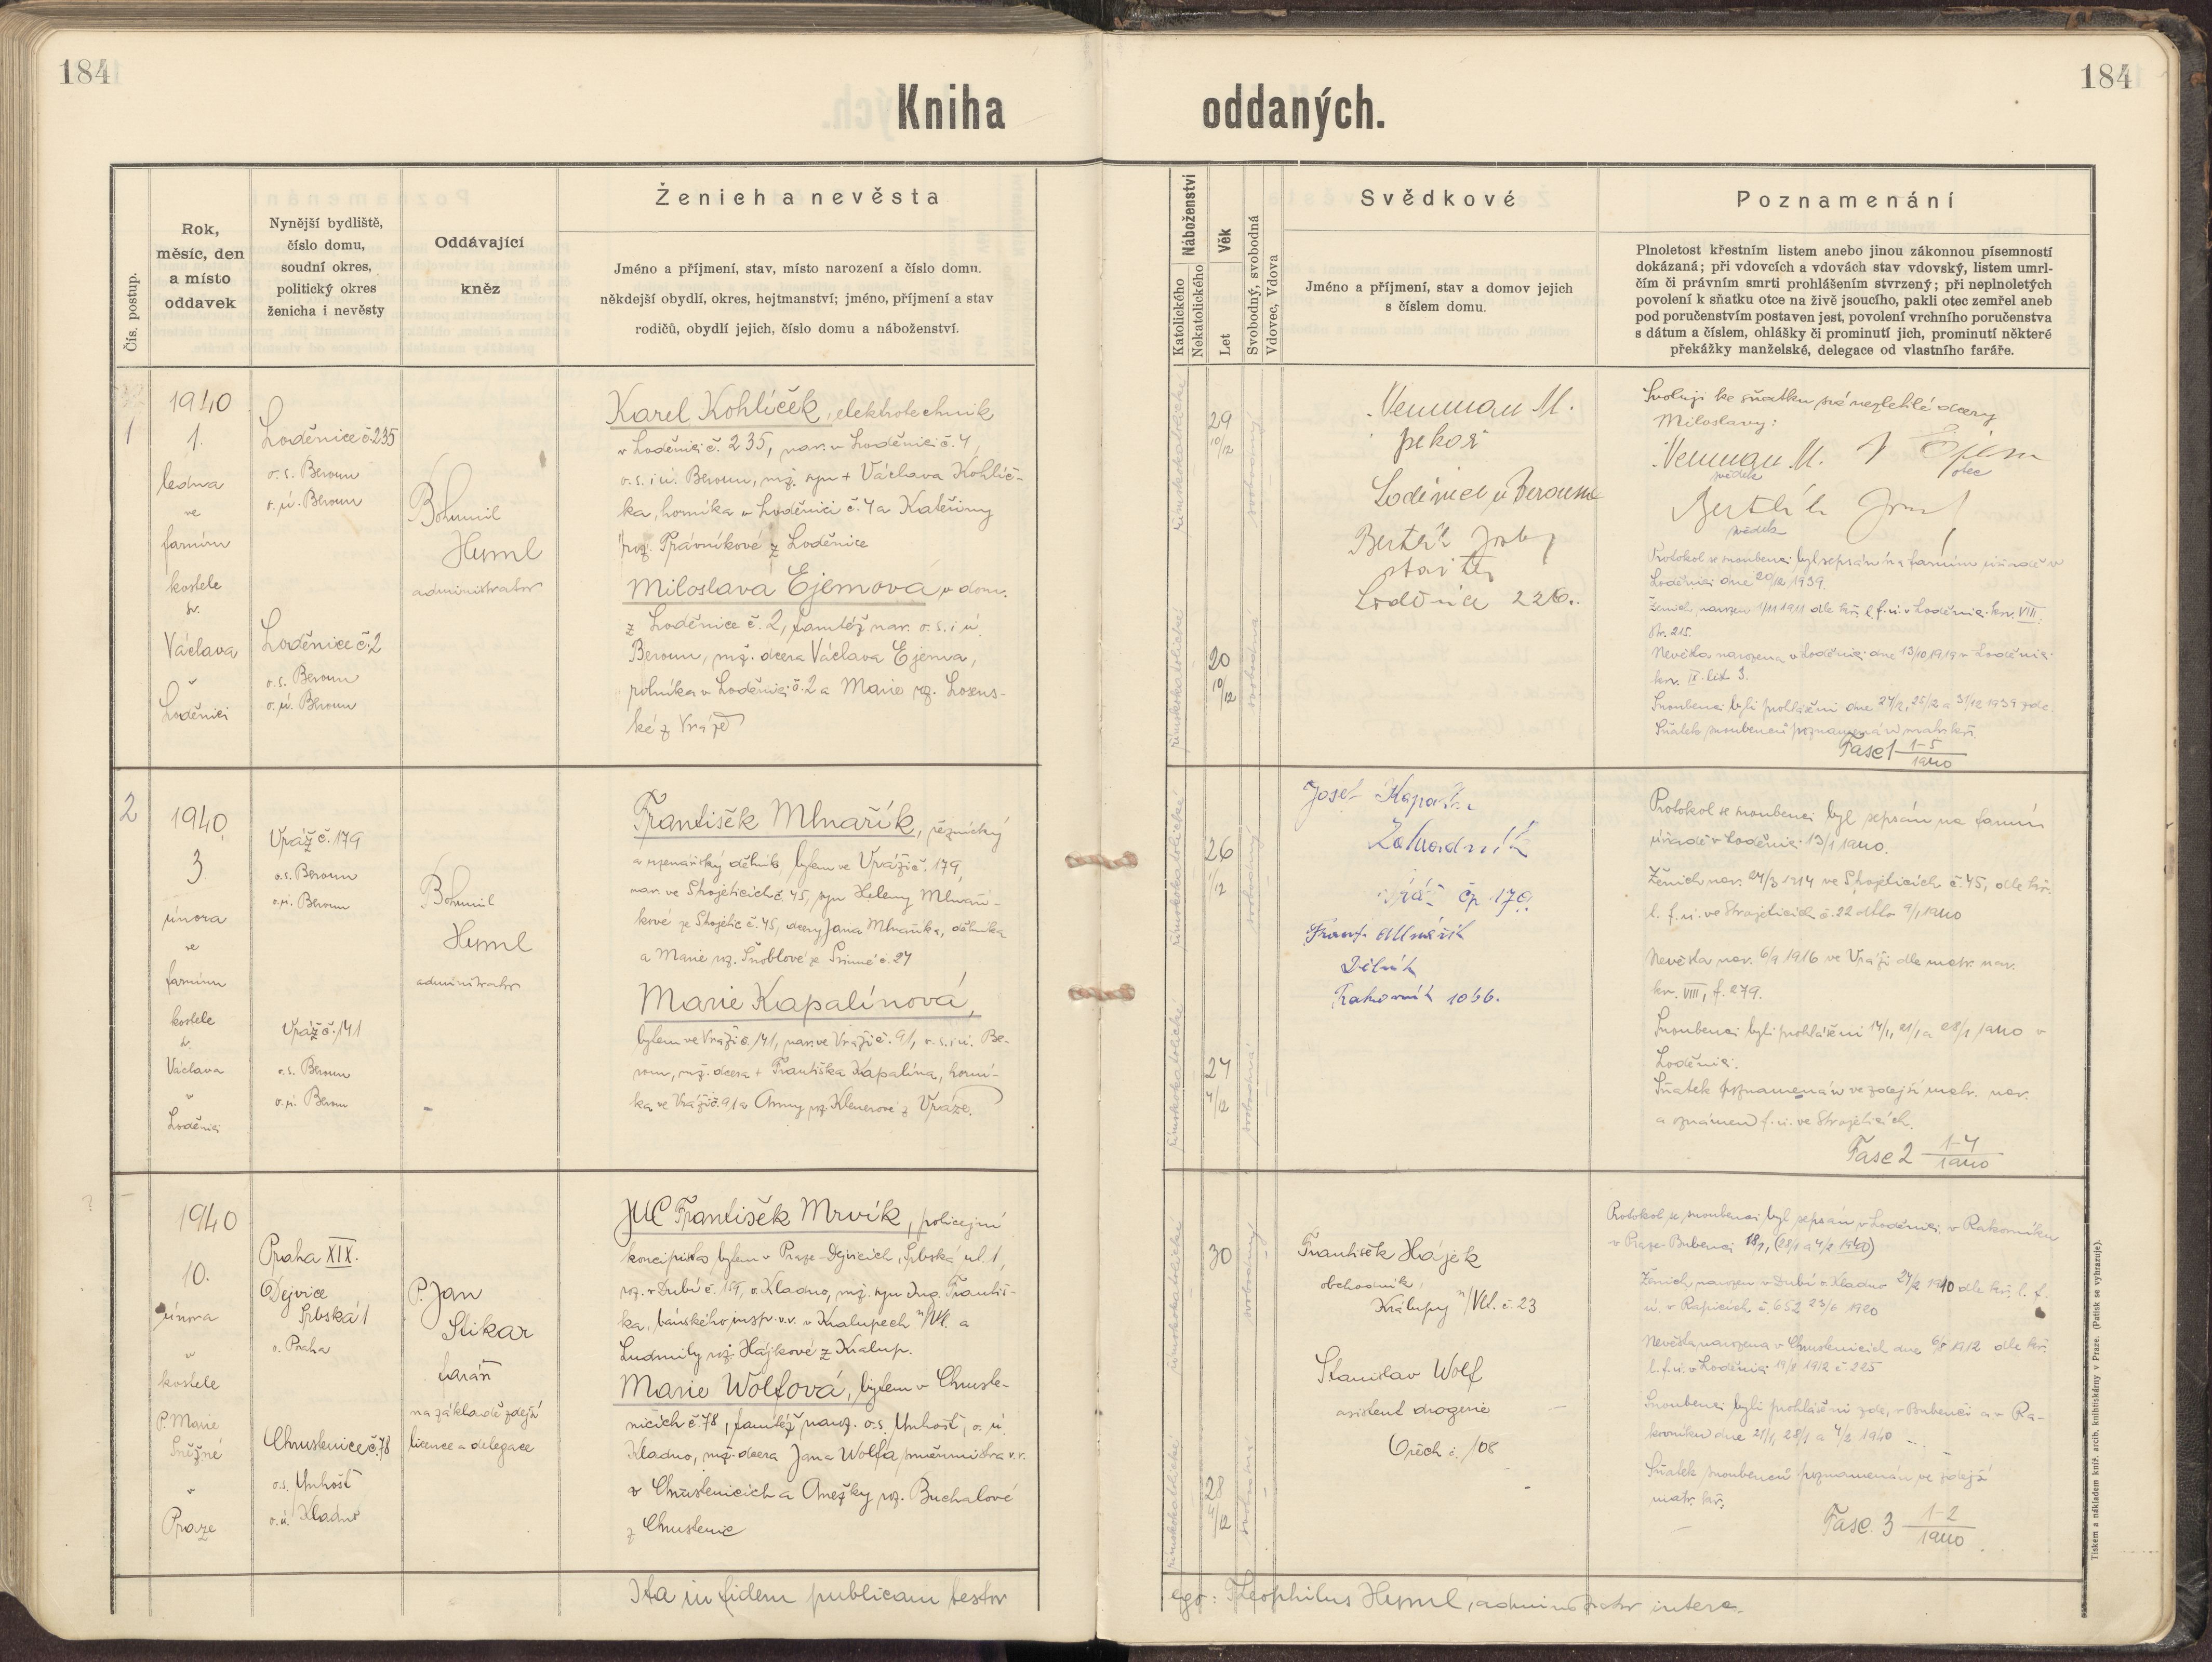 184
184
Kniha
oddaných.
Čís. postup.
Rok,
měsíc, den
a místo
oddavek
Nynější bydliště,
číslo domu,
soudní okres,
politický okres
ženicha i nevěsty
Oddávající
kněz
Ženich a nevěsta
Jméno a příjmení, stav, místo narození a číslo domu.
někdejší obydlí, okres, hejtmanství; jméno, příjmení a stav
rodičů, obydlí jejich, číslo domu a náboženství.
Náboženství
Katolického
Nekatolického
Věk
Let
Svobodný, svobodná
Vdovec, Vdova
Svědkové
Jméno a příjmení, stav a domov jejich
s číslem domu.
Poznamenání
Plnoletost křestním listem anebo jinou zákonnou písemností
dokázaná; při vdovcích a vdovách stav vdovský, listem umrl-
čím či právním smrti prohlášením stvrzený; při neplnoletých
povolení k sňatku otce na živě jsoucího, pakli otec zemřel aneb
pod poručenstvím postaven jest, povolení vrchního poručenstva
s dátum a číslem, ohlášky či prominutí jich, prominutí některé
překážky manželské, delegace od vlastního faráře.
1
1940
1.
ledna
ve
farním
kostele
sv.
Václava
v
Loděnici
Loděnice č. 235
o. s. Beroun
o. ú. Beroun
Loděnice č. 2
o. s. Beroun
o. ú. Beroun
Bohumil
Hyml
administrator
Karel Kohlíček, elektrotechnik
v Loděnici č. 235, nar. v Loděnici č. 4,
o. s. i ú. Beroun, mž. syn + Václava Kohlíč-
ka, horníka v Loděnici č. 4 a Kateřiny
roz. Právníkové z Loděnice
Miloslava Ejemová, v dom.
z Loděnice č. 2, tamtéž nar. o. s. i ú.
Beroun, mž. dcera Václava Ejema,
rolníka v Loděnici č. 2 a Marie roz. Losens-
ké z Vráže
římskokatolické
29
10/12
svobodný
římskokatolické
20
10/12
svobodná
Neumann M.
pekař
Loděnice u Berouna
Josef
Loděnice 226.
Svoluji ke sňatku své nezletilé dcery
Miloslavy:
Neumann M. Ejem
svědek otec
svědek
Protokol se snoubenci byl sepsán na farním úřadě v
Loděnici dne 20/12 1939.
Ženich narozen 1/11 1911 dle kř. l. f. ú. v Loděnici kn. VIII.
str. 215.
Nevěsta narozena v Loděnici dne 13/10 1919 v Loděnici
kn. IX. list 3.
Snoubenci byli prohlášeni dne 24/12, 25/12 a 31/12 1939 zde.
Sňatek snoubenců poznamenán v matr. kř.
Fasc 1 1-5/1940
2
1940
3
února
ve
farním
kostele
sv.
Václava
v
Loděnici
Vráž č. 179
o. s. Beroun
o. ú. Beroun
Vráž č. 141
o. s. Beroun
o. ú. Beroun
Bohumil
Hyml
administrator
František Mlnařík, řeznický
a uzenářský dělník, bytem ve Vráži č. 179,
nar. ve Strojeticích č. 45, syn Heleny Mlnaří-
kové ze Strojetic č. 45, dcery Jana Mlnaříka, dělníka
a Marie roz. Šnoblové
Marie Kapalínová,
bytem ve Vráži č. 141, nar. ve Vráži č. 91, o. s. i ú. Be-
roun, mž. dcera + Františka Kapalína, horní-
ka ve Vráži č. 91 a Anny roz. Klenerové z Vráže.
římskokatolické
26
1/12
svobodný
římskokatolické
24
4/12
svobodná
Josef
Zahradník
Vráž čp. 179.
Frant. Mlnařík
Dělník
Rakovník 1066.
Protokol se snoubenci byl sepsán na farním
úřadě v Loděnici 13/1 1940.
Ženich nar. 24/3 1914 ve Strojeticích č. 45, dle kř.
l. f. ú. ve Strojeticích č. 22 ddto 9/1 1940
Nevěsta nar. 6/9 1916 ve Vráži dle matr. nar.
kn. VIII, f. 279.
Snoubenci byli prohlášeni 14/1, 21/1 a 28/1 1940 v
Loděnici.
Sňatek poznamenán ve zdejší matr. nar.
a oznámen f. ú. ve Strojeticích.
Fasc 2 1-4/1940
1940
10.
února
v
kostele
P. Marie
Sněžné
v
Praze
Praha XIX.
Dejvice
Srbská 1
o. Praha
Chrustenice č. 78
o. s. Unhošť
o. ú. Kladno
P. Jan
Stikar
farář
na základě zdejší
licence a delegace
JUC František Mrvík, policejní
koncipista bytem v Praze-Dejvicích, Srbská ul. 1,
roz. v Dubí č. 159, o. Kladno, mž. syn Ing. Františ-
ka, báňského insp. v. v. v Kralupech n/Vl. a
Ludmily roz. Hájkové z Kralup.
Marie Wolfová, bytem v Chruste-
nicích č. 78, tamtéž naroz. o. s. Unhošť, o. ú.
Kladno, mž. dcera Jana Wolfa, směnmistra v. v.
v Chrustenicích a Anežky roz. Buchalové
z Chrustenic
římskokatolické
30
svobodný
římskokatolické
28
4/12
svobodná
František Hájek
obchodník
Kralupy n/Vlt. č. 23
Stanislav Wolf
asistent drogerie
Ořech č. 108
Protokol se snoubenci byl sepsán v Loděnici, v Rakovníku
v Praze-Bubenči 18/1, (28/1 a 4/2 1940)
Ženich narozen v Dubí o. Kladno 24/2 1910 dle kř. l. f.
ú. v Rapicích, č. 652 23/6 1920
Nevěsta narozena v Chrustenicích dne 6/8 1912 dle kř.
l. f. ú. v Loděnici 19/8 1912 č. 225
Snoubenci byli prohlášeni zde, v Bubenči a v Ra-
kovníku dne 21/1, 28/1 a 4/2 1940
Sňatek snoubenců poznamenán ve zdejší
matr. kř.
Fasc. 3 1-2/1940
Ita in fidem publicam testor
ego: Theophilus Hyml, administrator interc.
Tiskem a nákladem kníž. arcib. knihtiskárny v Praze. (Patisk se vyhrazuje).